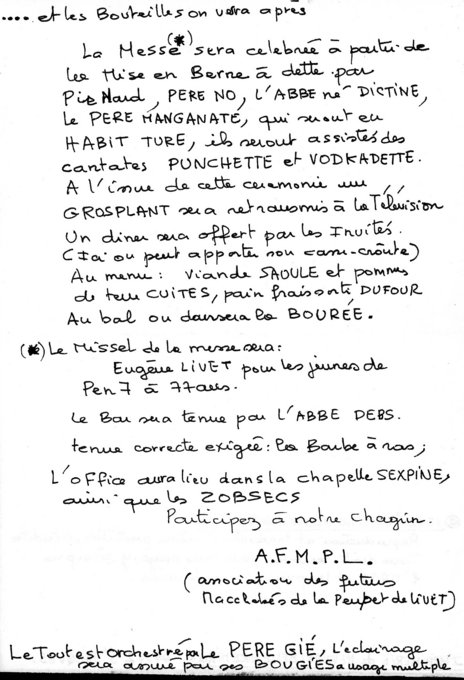 .... et les Bouteilles on verra après
La Messe (*) sera celebrée à partir de
la Mise en Berne à dette par
Pie Nard, PERE NO, L'ABBE né DICTINE,
le PERE MANGANATE, qui seront en
HABIT TURE, ils seront assistés des
cantates PUNCHETTE et VODKADETTE.
A l'issue de cette ceremonie un
GROSPLANT sera retransmis à la Télévision
Un diner sera offert par les Invités.
(Ici on peut apporter son casse-croûte)
Au menu : viande SAOULE et pommes
de terre CUITES, pain frais sorti DUFOUR
Au bal on dansera la BOURÉE.
(*) Le Missel de la messe sera :
Eugène LIVET pour les jeunes de
Pen 7 à 77 ans.
Le Bar sera tenue par L'ABBE DEBS.
tenue correcte exigée : la Barbe à ras ;
L'oFFice aura lieu dans la chapelle SEXPINE,
ainsi que les ZOBSECS
Participez à notre chagrin.
A.F.M.P.L.
(association des futurs
Macchabés de la Peupet de LIVET)
Le Tout est orchestré par Le PERE GIÉ, L'eclairage
sera assuré par ses BOUGIES a usage multiple